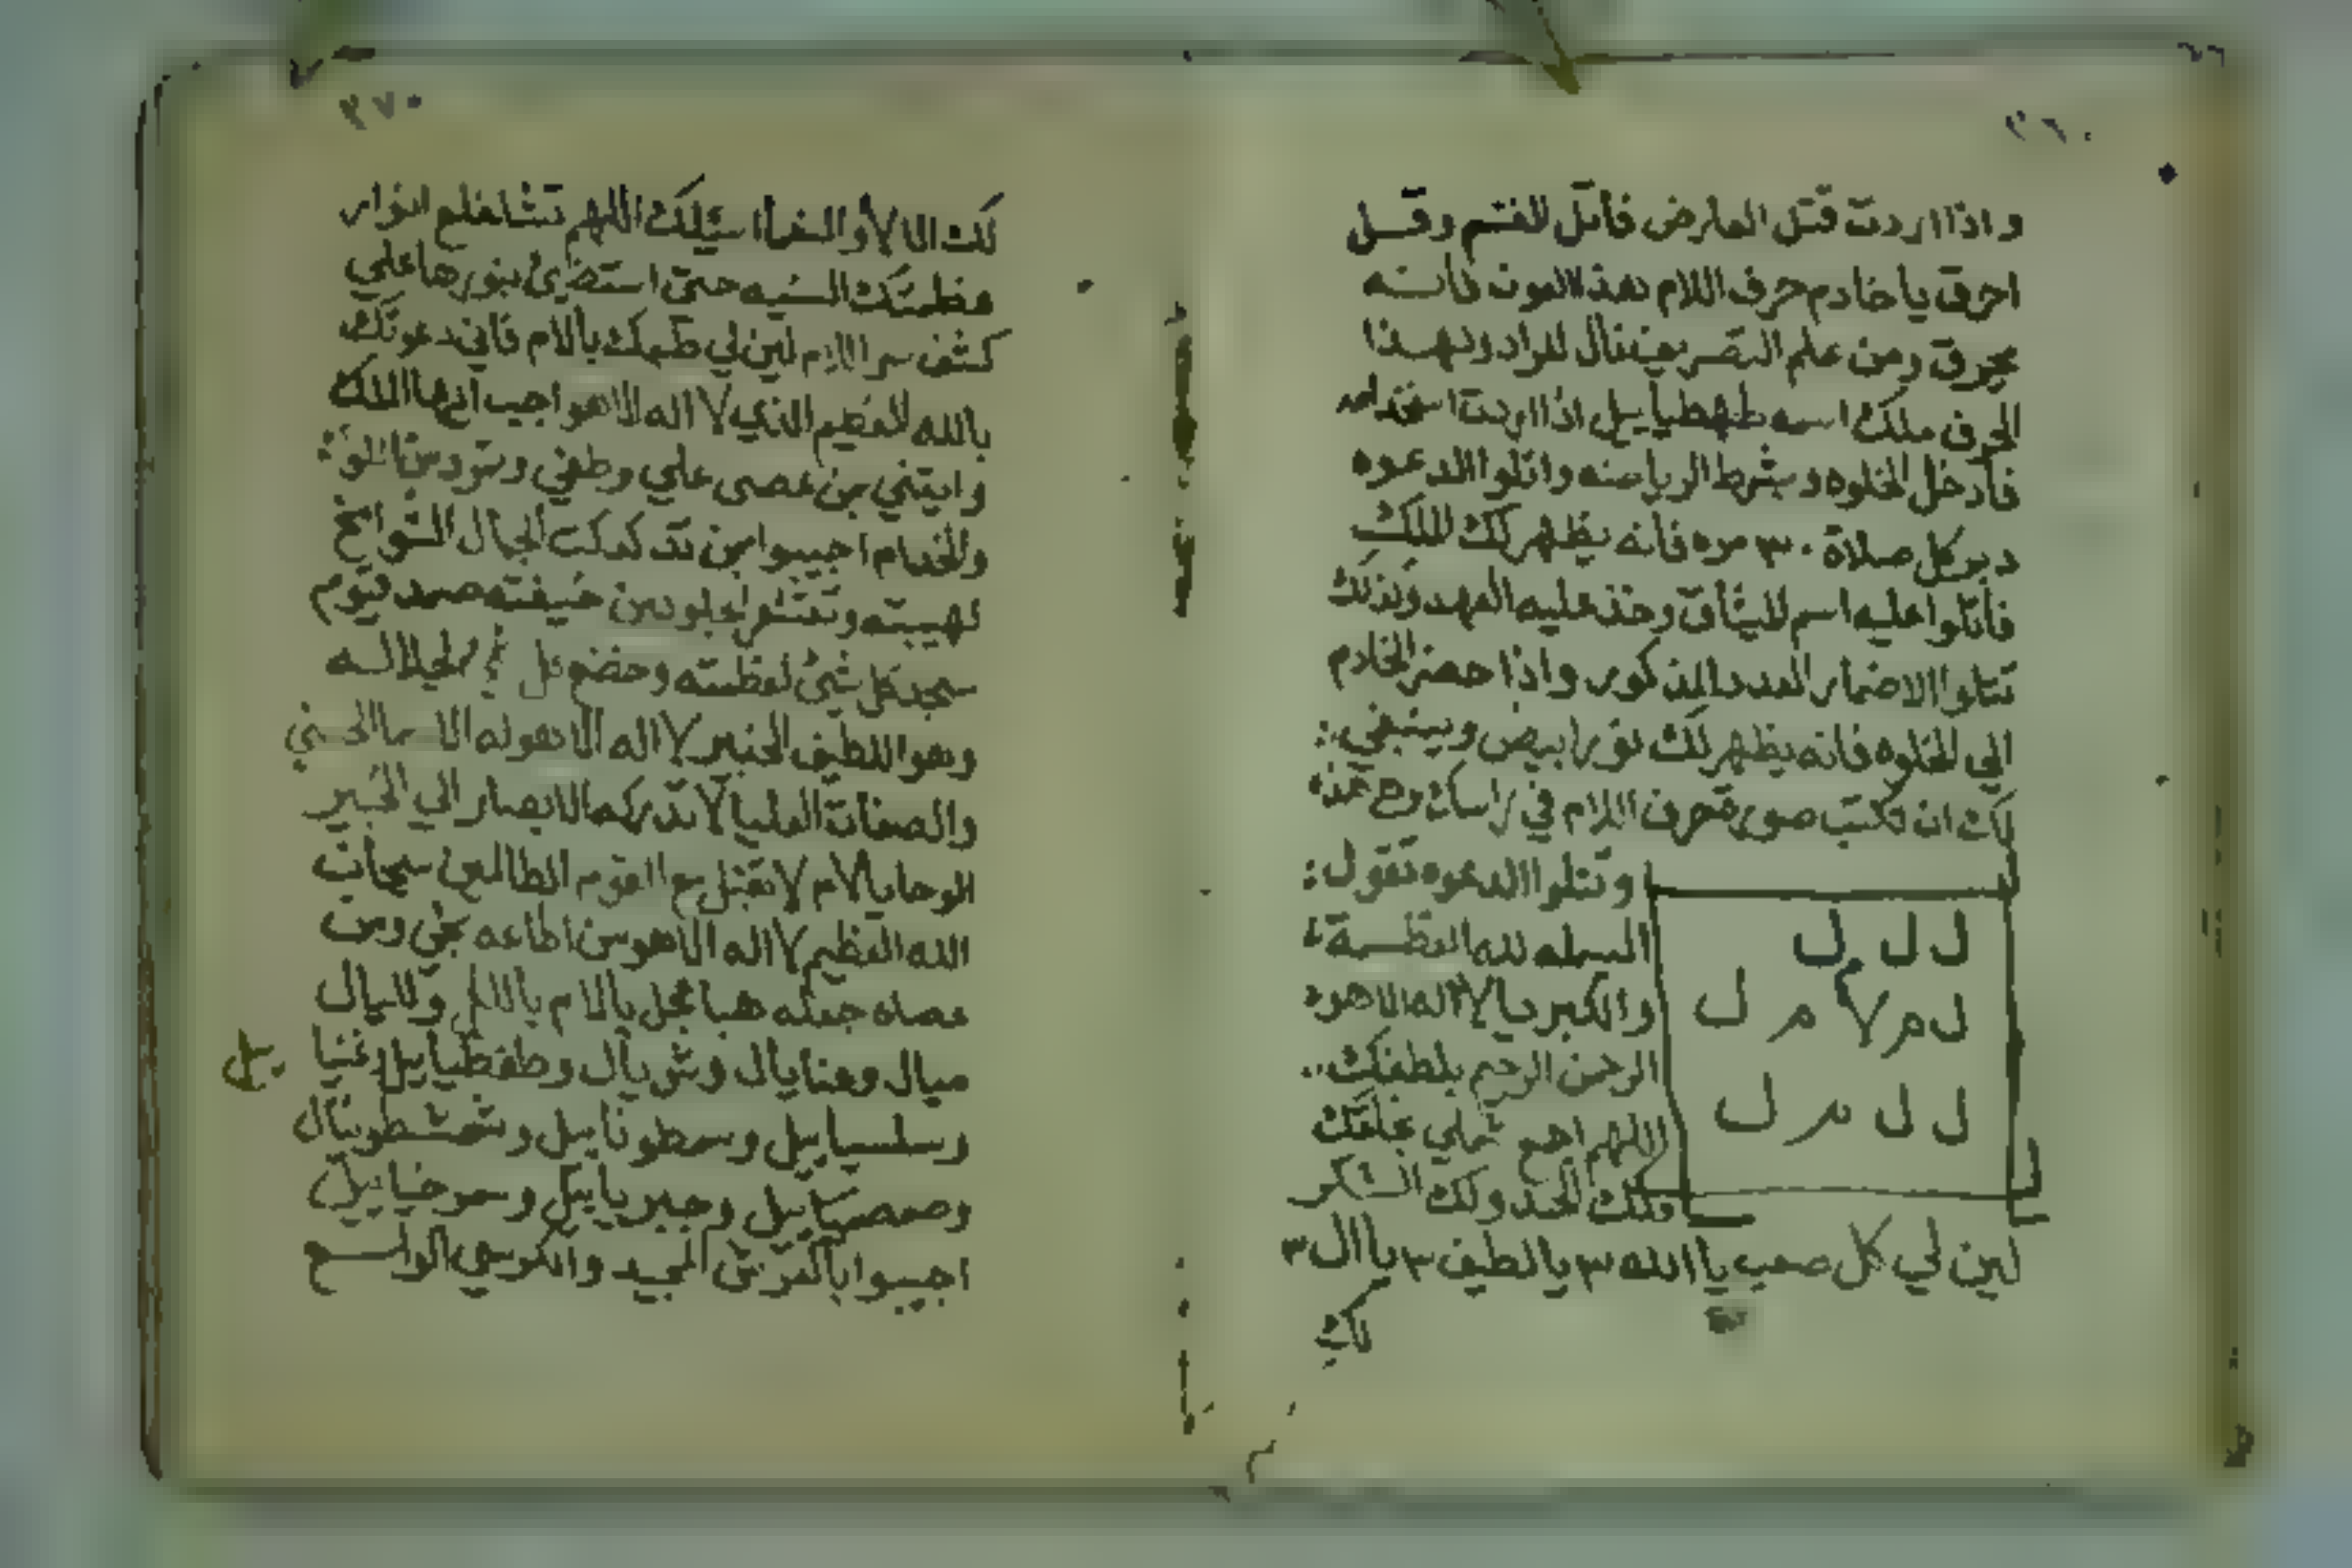 ٣٦٠
واذا اردت قتل العارض فاتل القسم وقل
احرق يا خادم حرف اللام هذا العون فانه
يحرق ومن علم التصريف نال المراد ولهذا
الحرف ملك اسمه طهطيايل اذا اردت استخدامه
فادخل الخلوه وشرط الرياضه واتلوا الدعوه
دبر كل صلاة ٣٠ مره فانه يظهر لك الملك
فاتلوا عليه اسم الميثاق وخذ عليه العهد وكذلك
تتلوا الاضمار العدد المذكور واذا حضر الخادم
الي الخلوه فانه يظهر لك نور ابيض وينبغي
لك ان تكتب صورة حرف اللام في راسك وهي هذه
وتتلوا الدعوه تقول
البسمله لله العظمة
والكبريا لا اله الا هو
الرحمن الرحيم بلطفك
اللهم
فلك الحمد ولك الشكر
ل ل ل
ل م لا م ل
ل ل م ل
لين لي كل صعب يا الله ٣ يا لطيف ٣ يا ال ٣
لك
٣٧٠
لك الالا والنعما اسيلك اللهم تشعشع انوار
عظمتك السنيه حتى استضيئ بنورها علي
كشف سر اللام لين لي طهك بالام فاني دعوتك
بالله العظيم الذي لا اله الا هو اجيب ايها الملك
وايتني من عصى علي وطغي
والخدام اجيبوا من تدكدكت الجبال الشوامخ
لهيبته وتقشعر الجلود من خيفته صمد قيوم
سجد كل شيئ لعظمته وخضع
وهو اللطيف الخبير لا اله الا هو له الاسما الحسني
والصفات العليا لا تدركه الابصار الي الخبير
الوحا يالام لا تقبل مع القوم الظالمين سبحان
الله العظيم لا اله الا هو من اطاعه نجي ومن
عصاه جعله هبا عجل بالام وللیال
ميال وعنايال وشريال وطفطيايل
وسلسيايل وسمطونايل
وصمصيايل وجبريايل وسرخيايل
اجيبوا بالعرش المجيد والكرسي الواسع